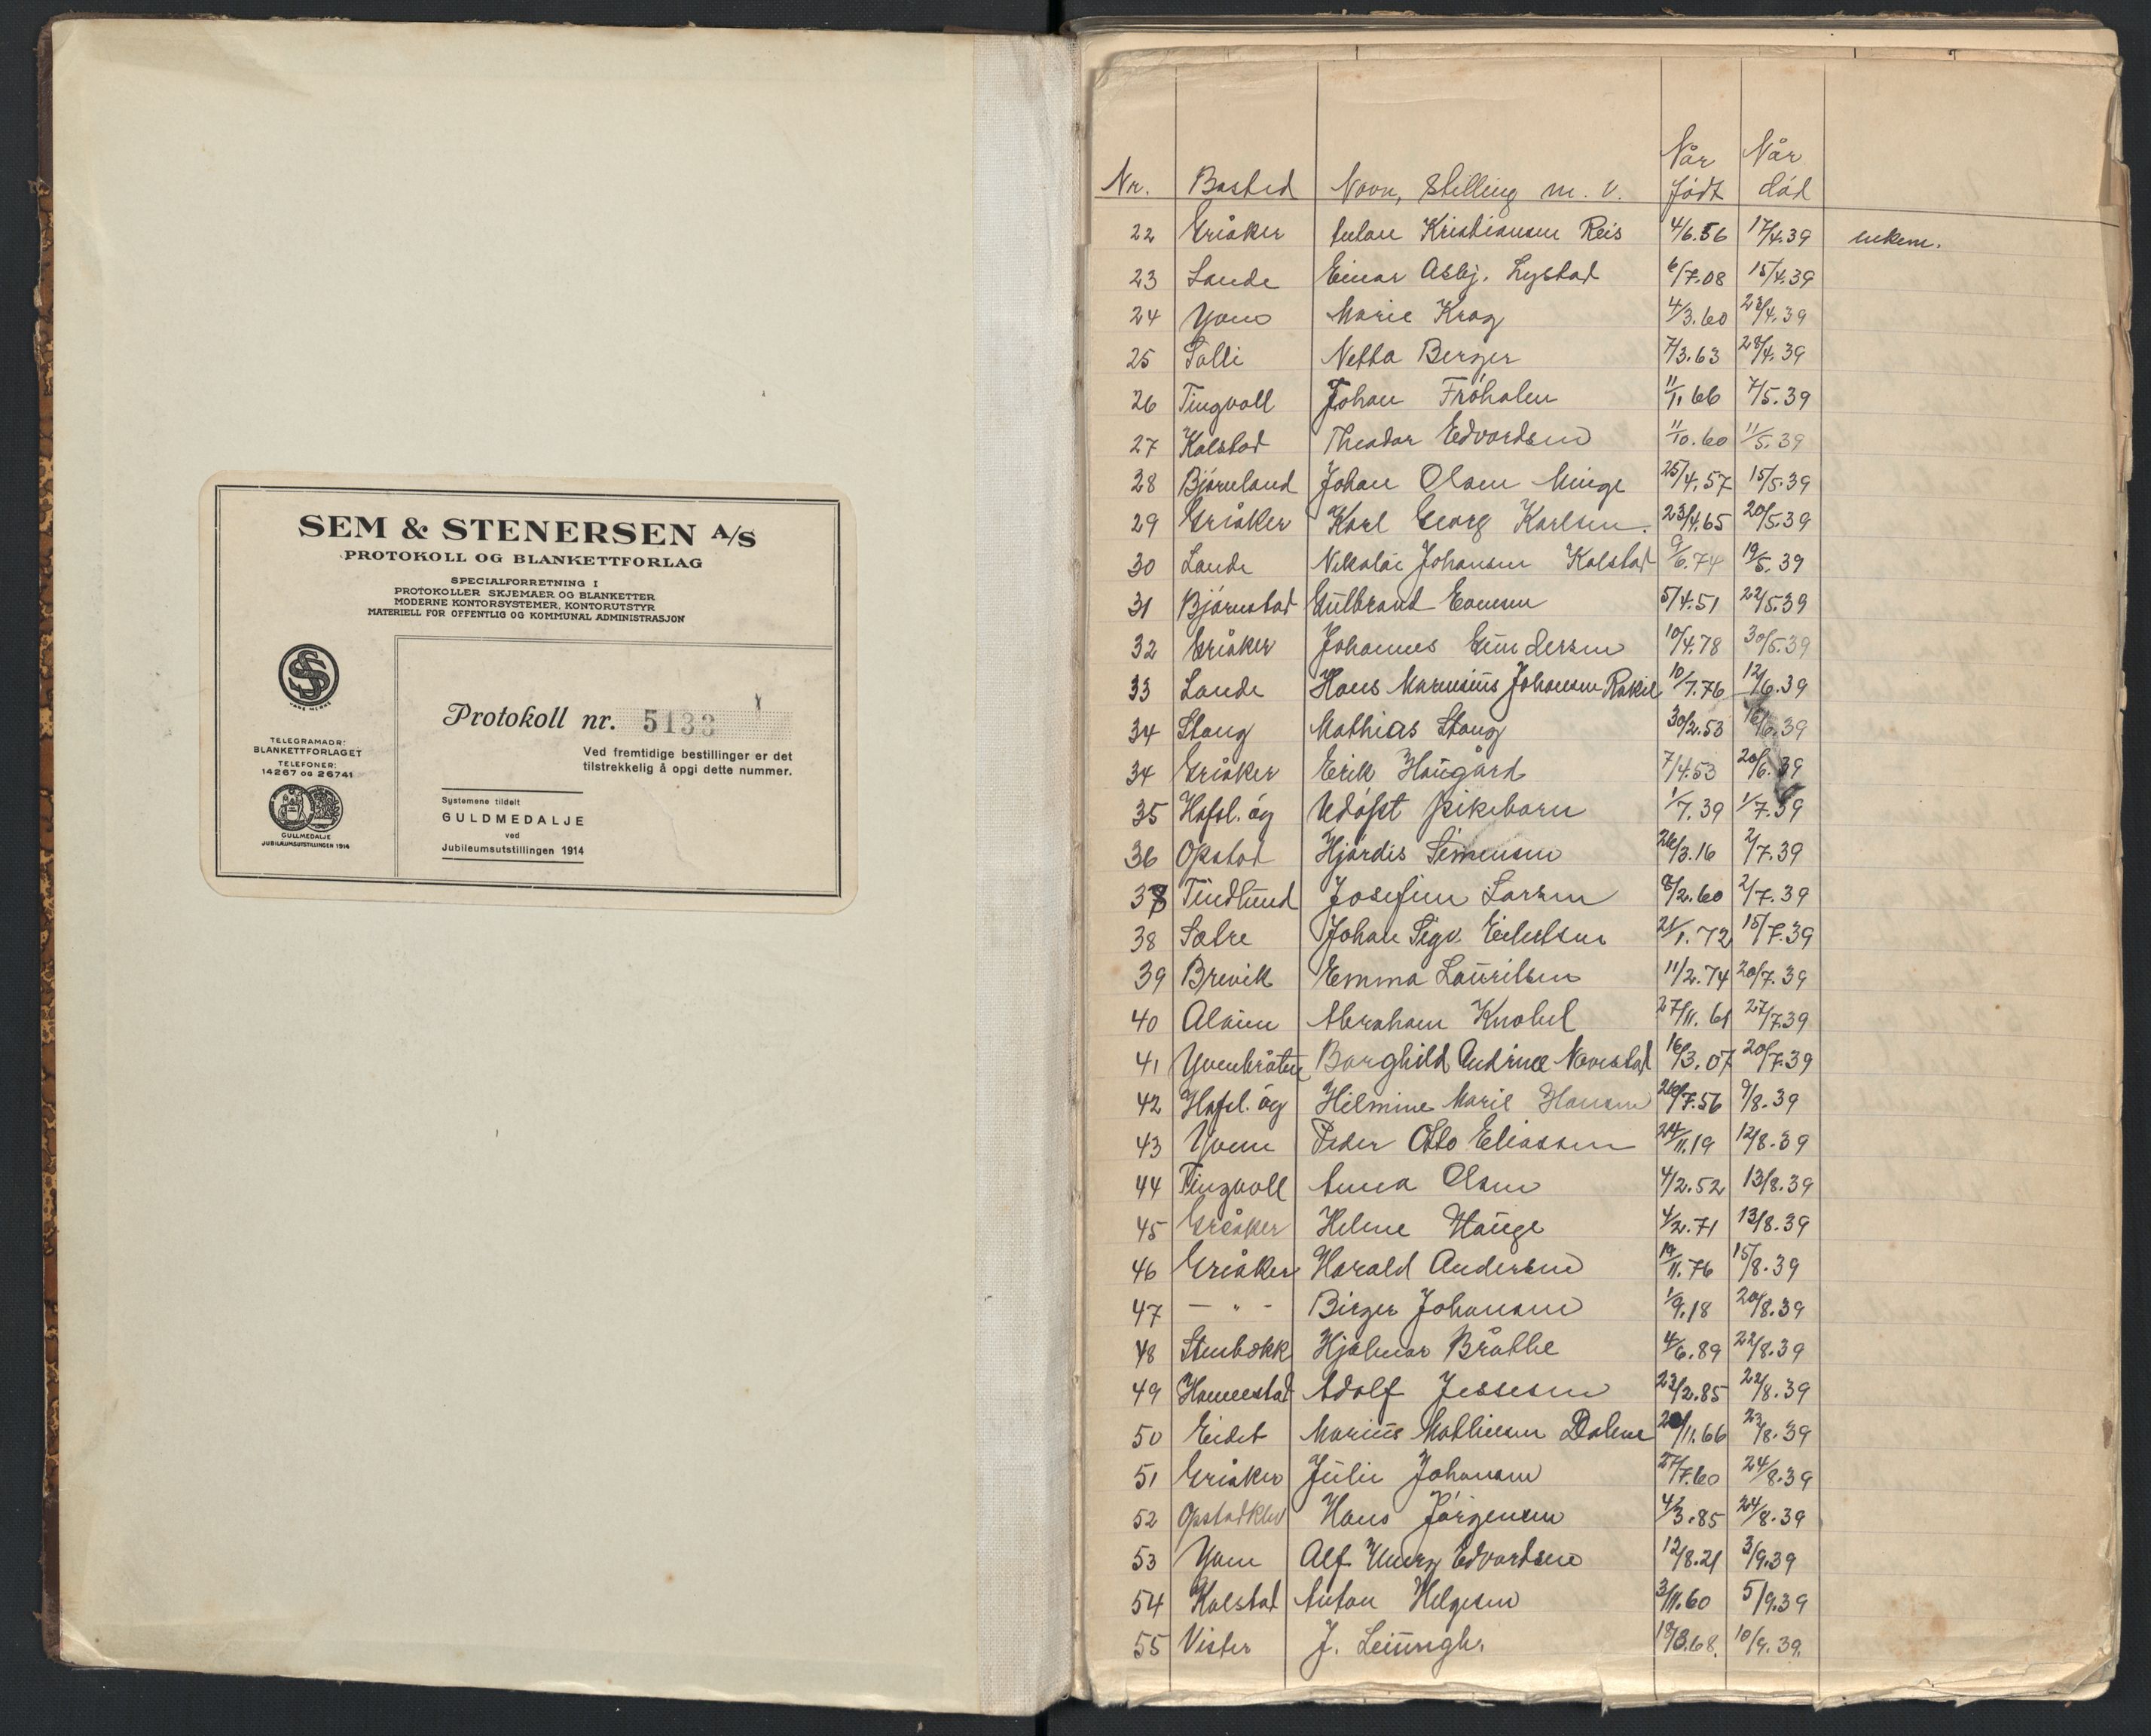 SEM & STENERSEN A/S
PROTOKOLL OG BLANKETTFORLAG
SPECIALFORRETNING I
PROTOKOLLER SKJEMAER OG BLANKETTER
MODERNE KONTORSYSTEMER, KONTORUTSTYR
MATERIELL FOR OFFENTLIG OG KOMMUNAL ADMINISTRASJON
TELEGRAMADR:
BLANKETTFORLAGET
TELEFONER:
14267 OG 26741
GULLMEDALJE
JUBILÆUMSUTSTILLINGEN 1914
Protokoll nr. 5133
Ved fremtidige bestillinger er det
tilstrekkelig å opgi dette nummer.
Systemene tildelt
GULDMEDALJE
ved
Jubileumsutstillingen 1914
Nr. Bosted Navn, Stilling m. v. Når født Når död
22 Gråker Kristiansen Reis 4/6.56 17/4.39 enkem.
23 Lande Einar Asbj. Lystad 6/7.08 15/4.39
24 Yven Marie Krog 4/3.60 23/4.39
25 Solli Netta Berger 7/3.63 28/4.39
26 Tingvoll Johan Fröholm 11/11.66 7/5.39
27 Kalstad Theodor Edvardsen 11/10.60 11/5.39
28 Björnland Johan Olsen Minge 25/4.57 15/5.39
29 Gråker Karl Georg Karlsen. 23/4.65 20/5.39
30 Lande Nikolai Johansen Kolstad 9/6.74 19/5.39
31 Björnstad Gulbrand Evensen 5/4.51 22/5.39
32 Gråker Johannes Gundersen 10/4.78 30/5.39
33 Lande Hans Marensius Johansen Rakil 10/7.76 12/6.39
34 Stang Mathias Stang 30/2.53 16/6.39
34 Gråker Erik Haugård 7/4.53 20/6.39
35 Hafsl. og Udöpt pikebarn 1/7.39 1/7.39
36 Opstad Hjördis Simensen 26/3.16 2/7.39
37 Tindlund Josefine Larsen 8/2.60 2/7.39
38 Solre Johan Sigv. Eilertsen 21/1.72 15/7.39
39 Brevik Emma Lauritsen 11/2.74 20/7.39
40 Alvim Abraham Knobel 27/11.61 27/7.39
41 Yvenbråten Borghild Andrine Navestad 16/3.07 20/7.39
42 Hafsl. og Hilmine Marie Hansen 26/7.56 9/8.39
43 Yven Peder Otto Eliassen 24/11.19 12/8.39
44 Tingvoll Anna Olsen 4/2.52 13/8.39
45 Gråker Helene Hauge 4/2.71 13/8.39
46 Gråker Harald Andersen 19/11.76 15/8.39
47 — " - Birger Johansen 1/9.18 20/8.39
48 Stenbekk Hjalmar Bråthe 4/6.89 22/8.39
49 Hannestad Adolf Jessesen 23/2.85 22/8.39
50 Eidet Marius Mathisen Dalene 20/11.66 23/8.39
51 Gråker Julie Johansen 27/7.60 24/8.39
52 Opstadklev Hans Jörgensen 4/3.85 24/8.39
53 Yven Alf Edvardsen 12/8.21 3/9.39
54 Kalstad Anton Helgesen 3/11.60 5/9.39
55 Vister J. 18/3.68. 10/9.39.